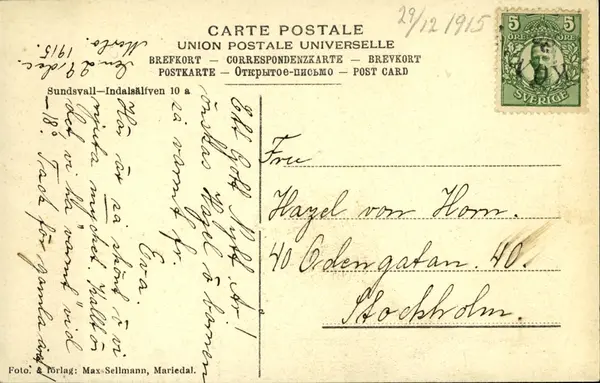 29/12 1915
CARTE POSTALE
UNION POSTALE UNIVERSELLE
BREFKORT – CORRESPONDENZKARTE – BREVKORT
POSTKARTE – Открытое-письмо – POST CARD
Sundsvall—Indalsälfven 10 a
5 5
ÖRE ÖRE
SVERIGE
den 29 dec.
1915.
Här är så skönt o vi
njuta mycket. Kallt är
det, vi ha "varmt" vid
–18°. Tack för gamla året!
Ett Gott Nytt År!
önskas Hazel o barnen
så varmt fr
Eva.
Fru
Hazel von Horn.
40 Odengatan. 40.
Stockholm.
Foto. & förlag: Max Sellmann, Mariedal.